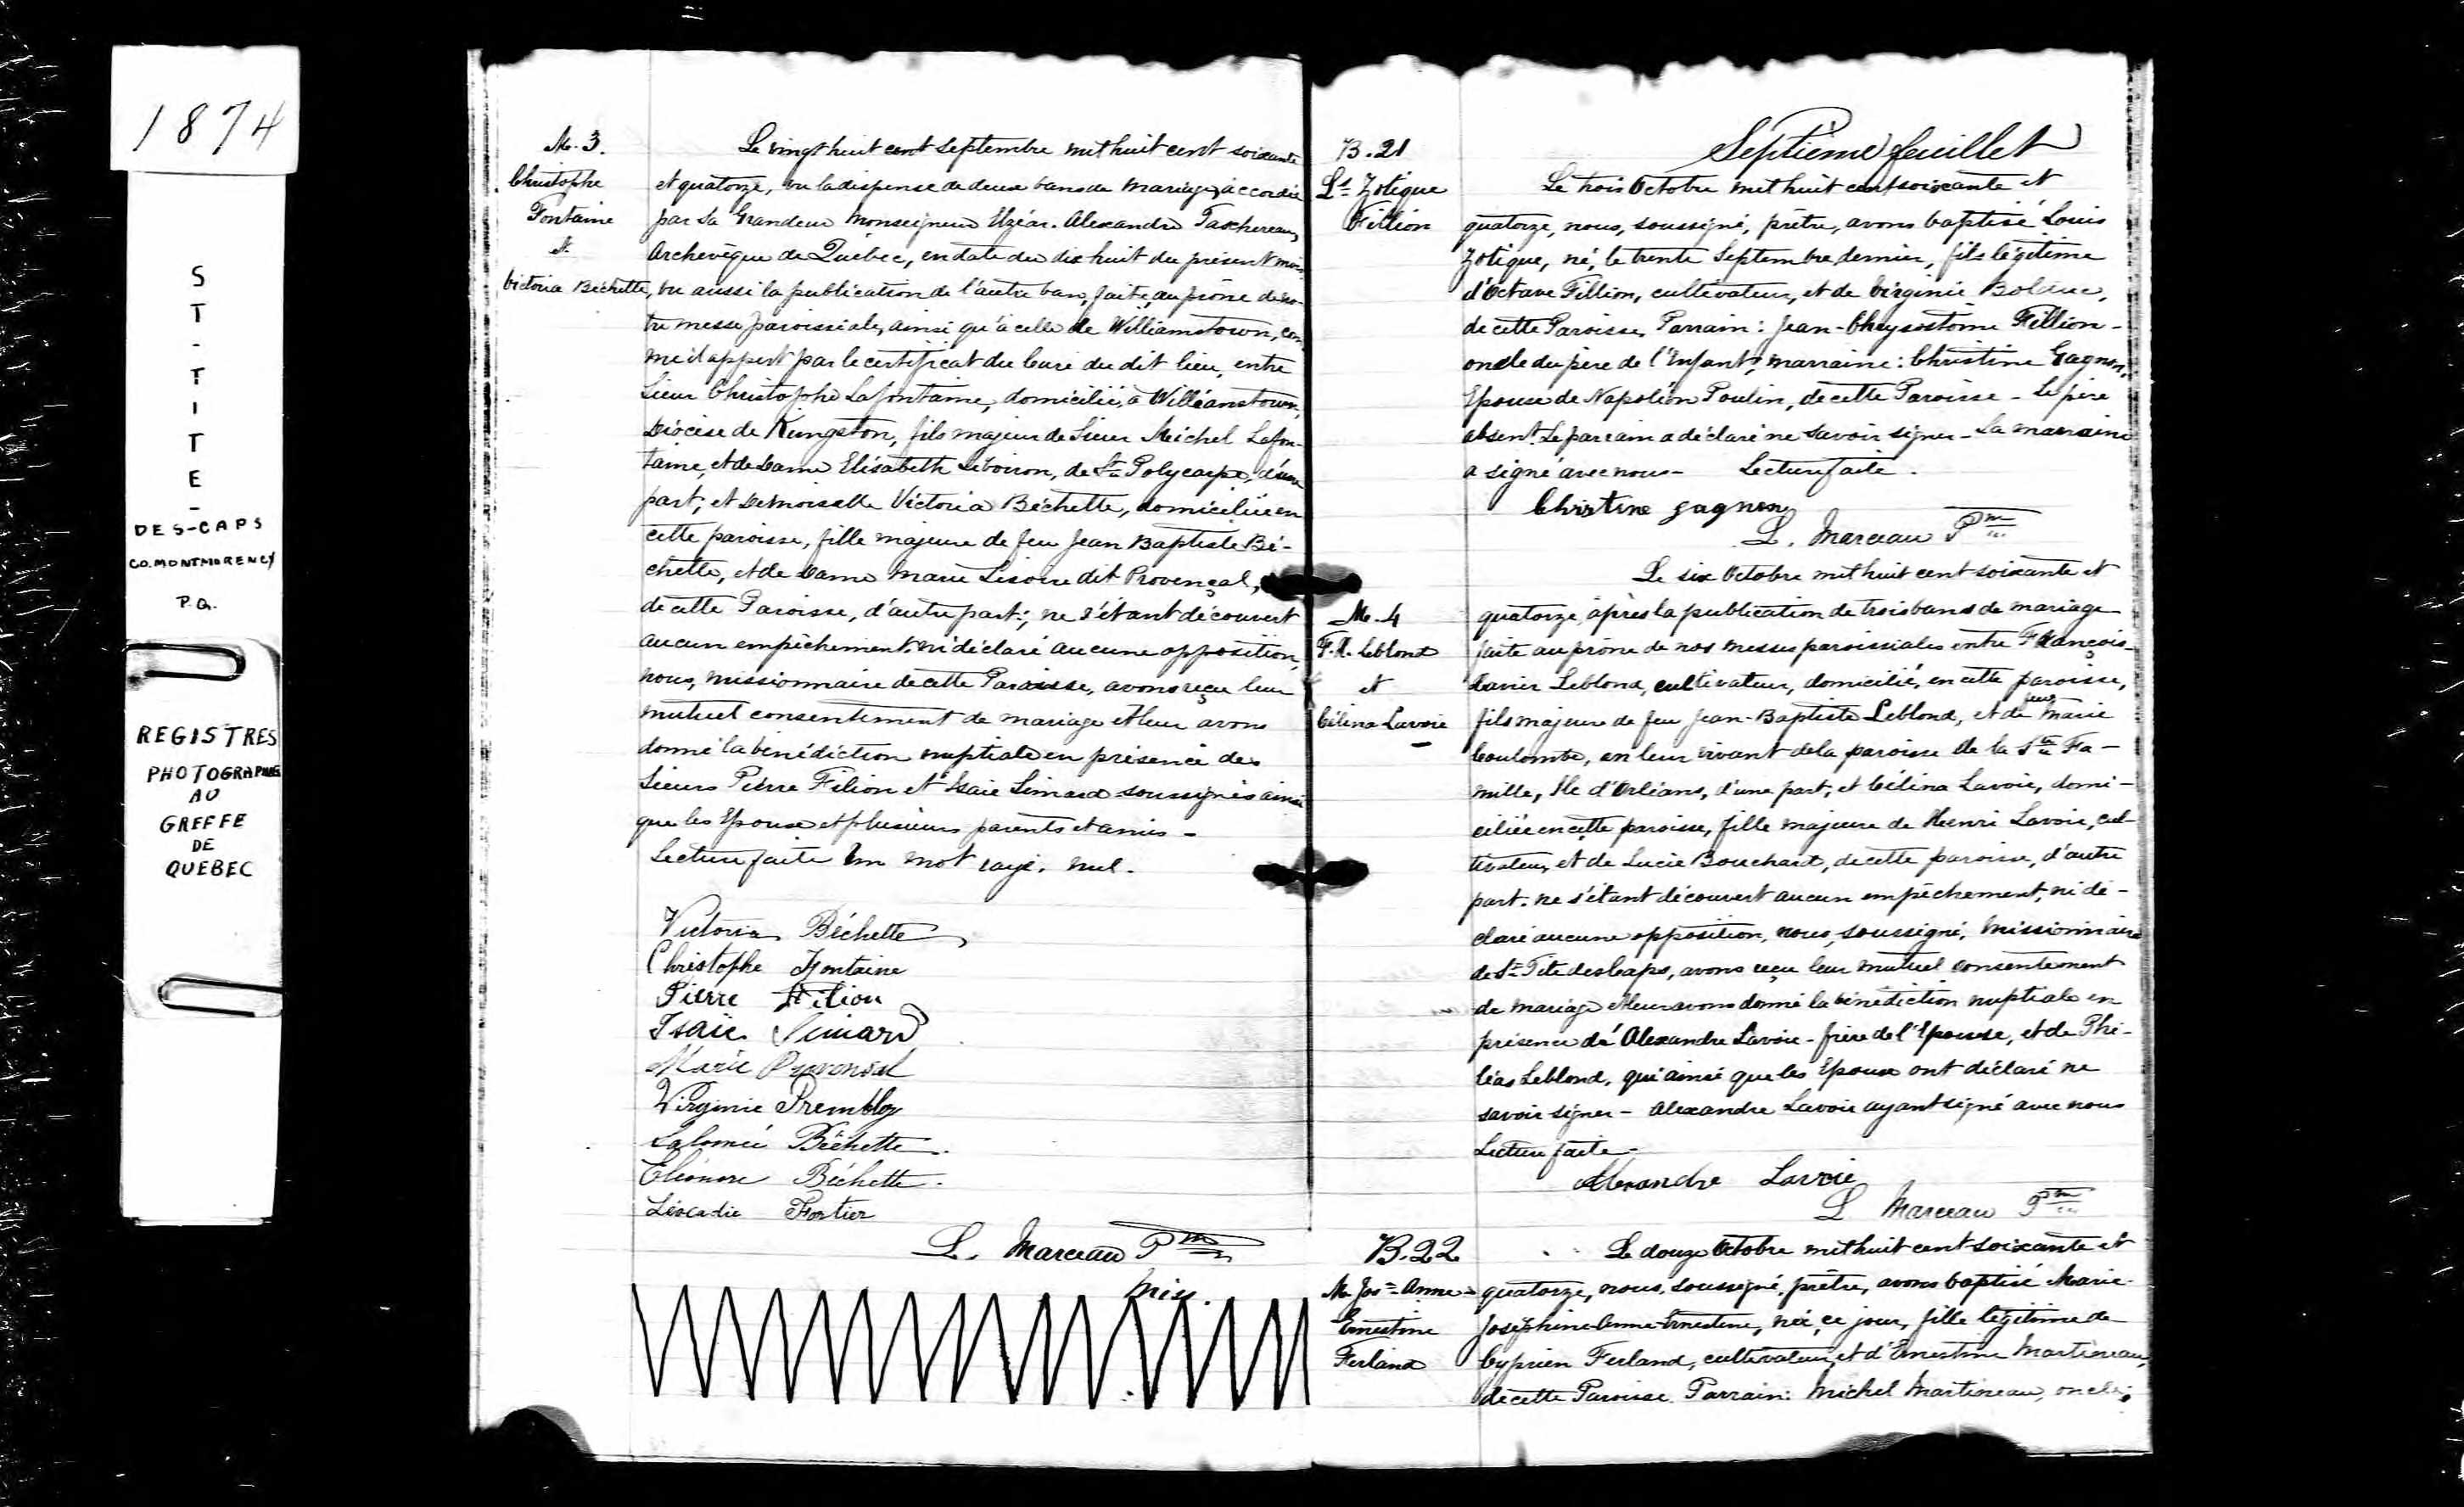 1874
ST-TITE-
DES-CAPS
CO. MONTMORENCY
P.Q.
REGISTRES
PHOTOGRAPHIÉS
AU
GREFFE
DE
QUEBEC
M. 3.
Christophe
Fontaine
&
Victoria Béchette
Le vingt huit cent septembre mil huit cent soixante
et quatorze, vu la dispense de deux bans de mariage, accordée
par Sa Grandeur Monseigneur Elzéar-Alexandre Taschereau,
Archevêque de Québec, en date du dix huit du présent mois
vu aussi la publication de l'autre ban, faite, au prône de no-
tre messe paroissiale, ainsi qu'à celle de Williamstown, com-
me il appert par le certificat du Curé du dit lieu, entre
Sieur Christophe Lafontaine, domicilié, à Williamstown,
Diocèse de Kingston, fils majeur de Sieur Michel Lafon-
taine, et de Dame Elisabeth, de St Polycarpe, d'une
part; et Demoiselle Victoria Béchette, domiciliée en
cette paroisse, fille majeure de feu Jean Baptiste Bé-
chette, et de Dame Marie dit Provençal,
de cette Paroisse, d'autre part; ne s'étant découvert
aucun empêchement ni déclaré aucune opposition,
nous, missionnaire de cette Paroisse, avons reçu leur
mutuel consentement de mariage et leur avons
donné la bénédiction nuptiale en présence des
Sieurs Pierre Filion et Isaïe Simard soussignés ainsi
que les Epoux et plusieurs parents et amis -
Lecture faite Un mot rayé. nul.
Victoria Béchette
Christophe Fontaine
Pierre Filion
Isaïe Simard
Marie Provensal
Virginie Trembley
Salomée Béchette
Eléonore Béchette
Léocadie Fortier
L. Marceau Ptre
Miss.
B. 21
Ls Zotique
Fillion
Septième feuillet
Le trois Octobre mil huit cent soixante et
quatorze, nous, soussigné, prêtre, avons baptisé Louis
Zotique, né, le trente Septembre dernier, fils légitime
d'Octave Fillion, cultivateur, et de Virginie Bolduc,
de cette Paroisse, Parrain: Jean-Chrysostome Fillion -
oncle du père de l'Enfant; marraine: Christine Gagnon,
Epouse de Napoléon Poulin, de cette Paroisse - Le père
absent. Le parrain a déclaré ne savoir signer - La marraine
a signé avec nous - Lecture faite.
Christine gagnon
L. Marceau Ptre
M. 4
F. X. Leblond
et
Célina Lavoie
Le six Octobre mil huit cent soixante et
quatorze, après la publication de trois bans de mariage
faite au prône de nos messes paroissiales entre François-
Xavier Leblond, cultivateur, domicilié, en cette paroisse,
fils majeur de feu Jean-Baptiste Leblond, et de feue Marie
Coulombe, en leur vivant de la paroisse de la Ste Fa-
mille, Ile d'Orléans, d'une part, et Célina Lavoie, domi-
ciliée en cette paroisse, fille majeure de Henri Lavoie, cul-
tivateur, et de Lucie Bouchard, de cette paroisse, d'autre
part. ne s'étant découvert aucun empêchement, ni dé-
claré aucune opposition, nous, soussigné, missionnaire
de St Tite des Caps, avons reçu leur mutuel consentement
de mariage et leur avons donné la bénédiction nuptiale en
présence de Alexandre Lavoie - frère de l'Epouse, et de Phi-
léas Leblond, qui ainsi que les Epoux ont déclaré ne
savoir signer - Alexandre Lavoie ayant signé avec nous
Lecture faite -
Alexandre Lavoie
L. Marceau Ptre
B. 22
M. Jos= Anne=
Ernestine
Ferland
Le douze Octobre mil huit cent soixante et
quatorze, nous, soussigné, prêtre, avons baptisé Marie-
Joséphine-Anne-Ernestine, née, ce jour, fille légitime de
Cyprien Ferland, cultivateur, et d'Ernestine Martineau,
de cette Paroisse. Parrain: Michel Martineau, oncle